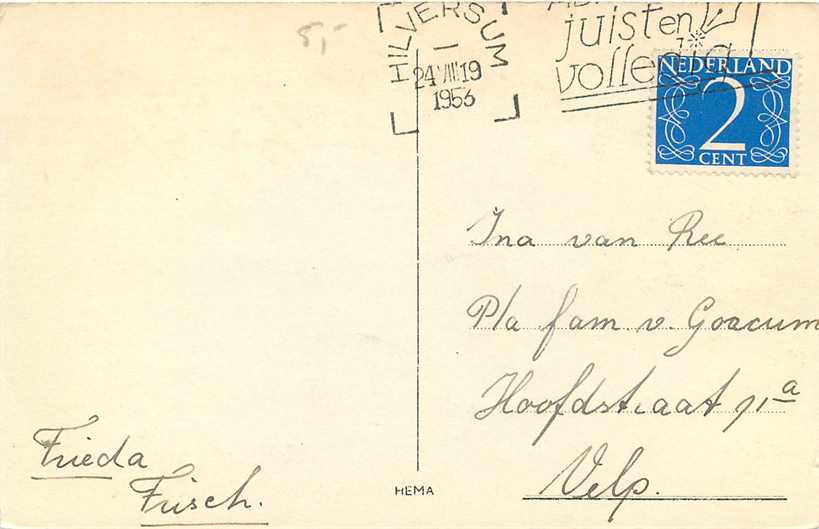 5,-
HILVERSUM
24 VIII 19
1953
juist en
volledig
NEDERLAND
2
CENT
Ina van Ree
P/a fam. v. Gorcum
Hoofdstraat 71a
Velp.
Frieda
Frisch.
HEMA